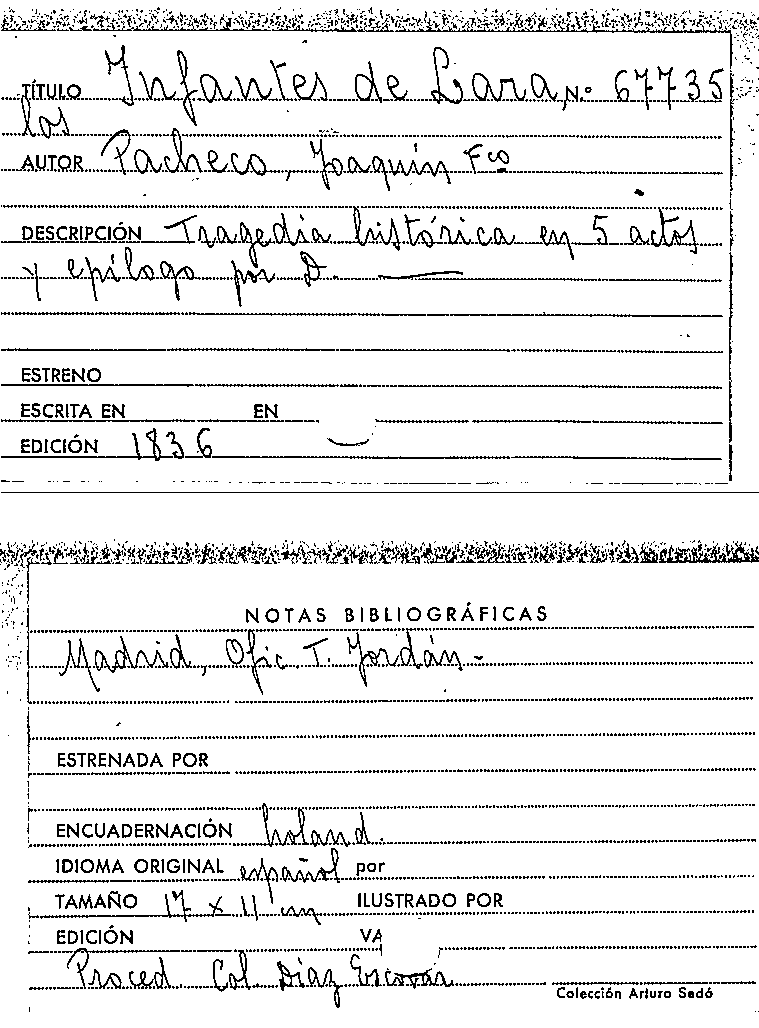 TÍTULO Infantes de Lara, N.º 67735
los
AUTOR Pacheco, Joaquín Fco
DESCRIPCIÓN Tragedia histórica en 5 actos
y epílogo por D. ——
ESTRENO
ESCRITA EN EN
EDICIÓN 1836
NOTAS BIBLIOGRÁFICAS
Madrid, Ofic T. Jordán -
ESTRENADA POR
ENCUADERNACIÓN holand.
IDIOMA ORIGINAL español por
TAMAÑO 17 x 11 cm ILUSTRADO POR
EDICIÓN VA
Proced. Col. Díaz Escovar
Colección Arturo Sedó